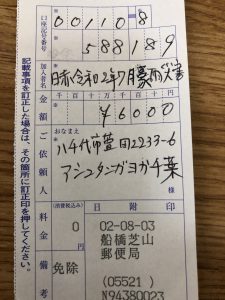 口座記号番号
00110 8
588189
加入者名
日赤令和2年7月豪雨災害
金額
千百十万千百十円
¥6000
ご依頼人
おなまえ
八千代市萱田2233-6
アシュタンガヨガ千葉
様
料金
(消費税込み)
0円
日附印
02-08-03
船橋芝山
郵便局
(05521)
N94380023
備考
免除
記載事項を訂正した場合は、その箇所に訂正印を押してください。